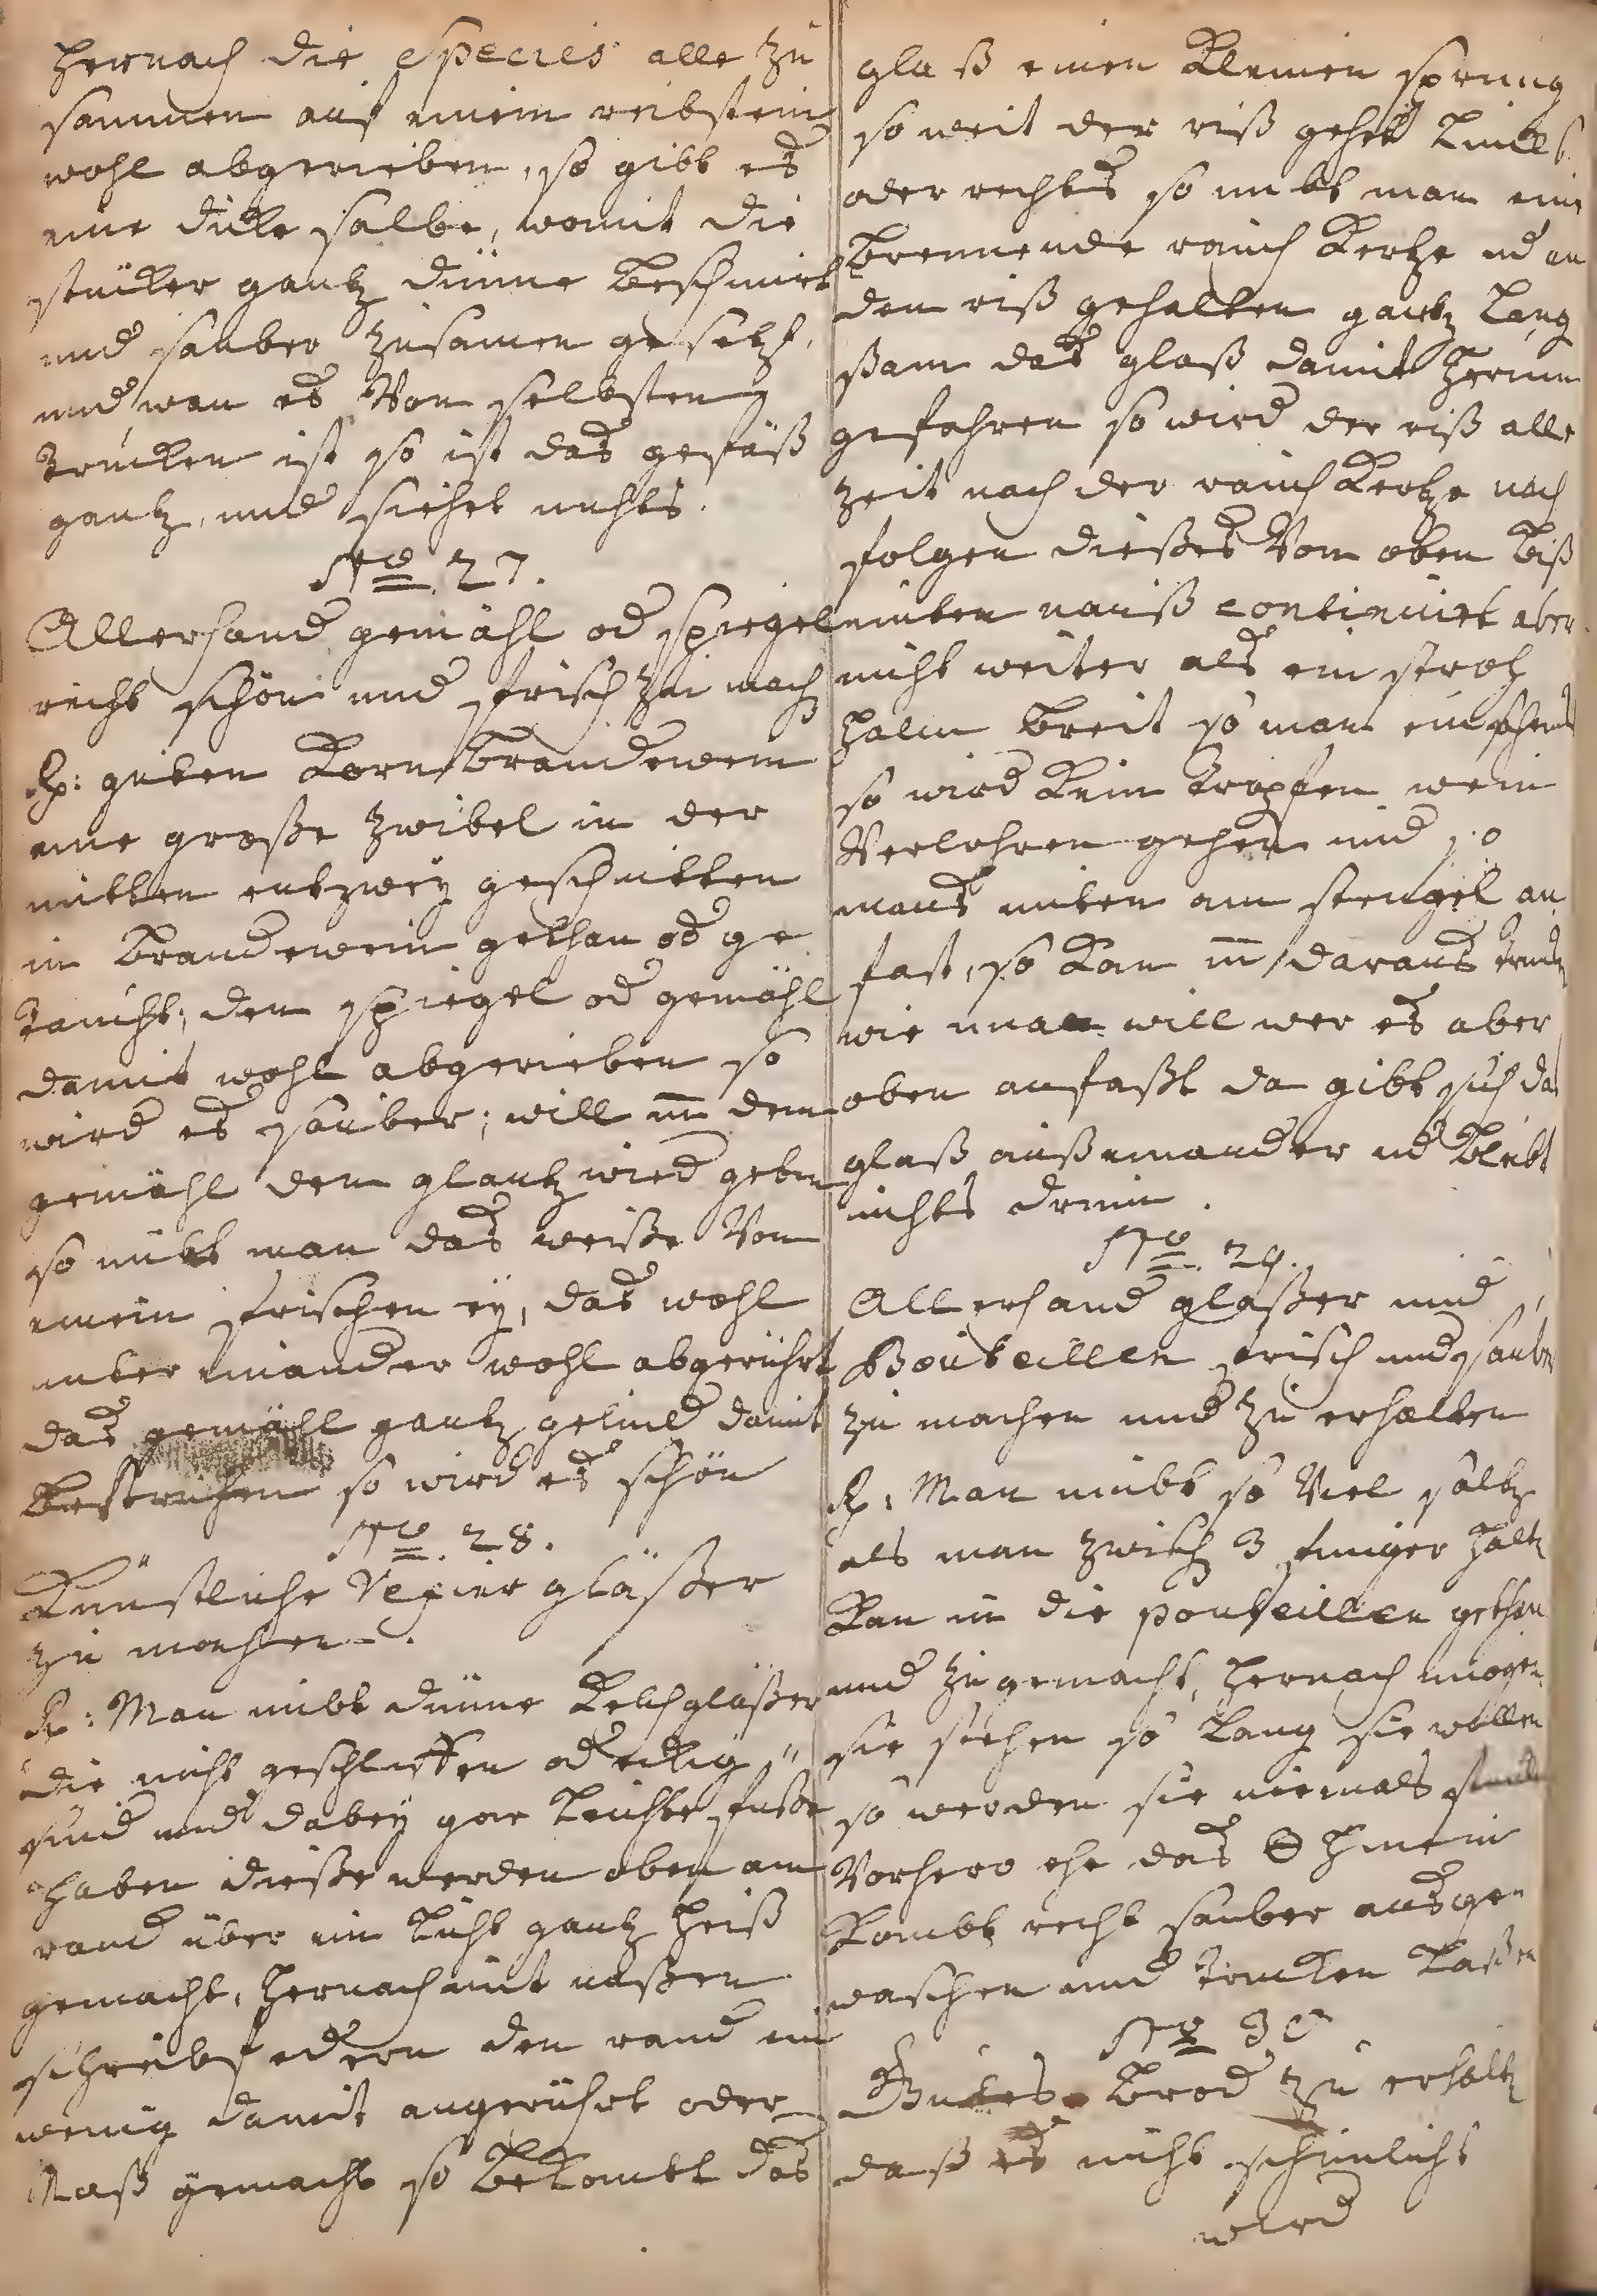 hernach die Species alle zu
sammen auf einem reibstein
wohl abgerieben, so gibt es
eine dicke salbe, womit die
stücker gantz dünne beschmirt
und sauber zusamen gesetzt,
und wan es Von selbsten
trucken ist so ist das gefäß
gantz, und siehet nichts.
No. 27.
Allerhand gemähl od spiegel
recht schön und frisch zu mach
Rp: guten Korn brandewein
eine große zwibel in der
mitten entzwey geschnitten
in brandewein gethan od ge
taucht, den spiegel od gemähl
damit wohl abgerieben so
wird es sauber; will m̄ dem
gemähl den glantz wied geben
so nimbt man das weiße Von
einem frischen ey, das wohl
unter einander wohl abgerührt
das gemähl gantz gelind damit
bestrichen so wird es schön
No. 28.
Künstliche Vexier gläßer
zu machen.
Rp: Man nimbt dünne Kelchgläßer
die nicht geschliffen od eckig
sind und dabey gar leichte füße
haben dieße werden oben am
rand über ein licht gantz heiß
gemacht, hernach mit naßen
schreibfedern den rand ein
wenig damit angerührt oder
Naß gemacht so bekombt das
glaß einen kleinen sprung
so weit der riß gehet lincks
oder rechts so nimbt man ein
brennende rauch kertze ud an
den riß gehalten gantz lang
ßam das glaß damit herum
gefahren so wird der riß alle
zeit nach der rauch kertze nach
folgen dießes Von oben biß
unten nauß continuirt aber
nicht weiter als ein stroh
halm breit so man einschenckt
so wird kein tropfen wein
Verlohren gehen und so
mans unten am stengel an
fast, so kan m̄ daraus trincken
wie man will wer es aber
oben anfaßt da gibt sich das
glaß außeinander ud bleibt
nichts drinn.
No. 29.
Allerhand glaßer und
Bouteillen frisch und sauber
zu machen und zu erhalten
Rp: Man nimbt so Viel saltz
als man zwisch 3 finger halt
kan in die pouteillen gethan
und zugemacht, hernach mögen
sie stehen so lang sie wollen
so werden sie niemals
Vorhero ehe das hinein
kombt recht sauber ausge
waschen und trucken laßen
No 30
Gutes brod zu erhalt
daß es nicht schimlicht
wird